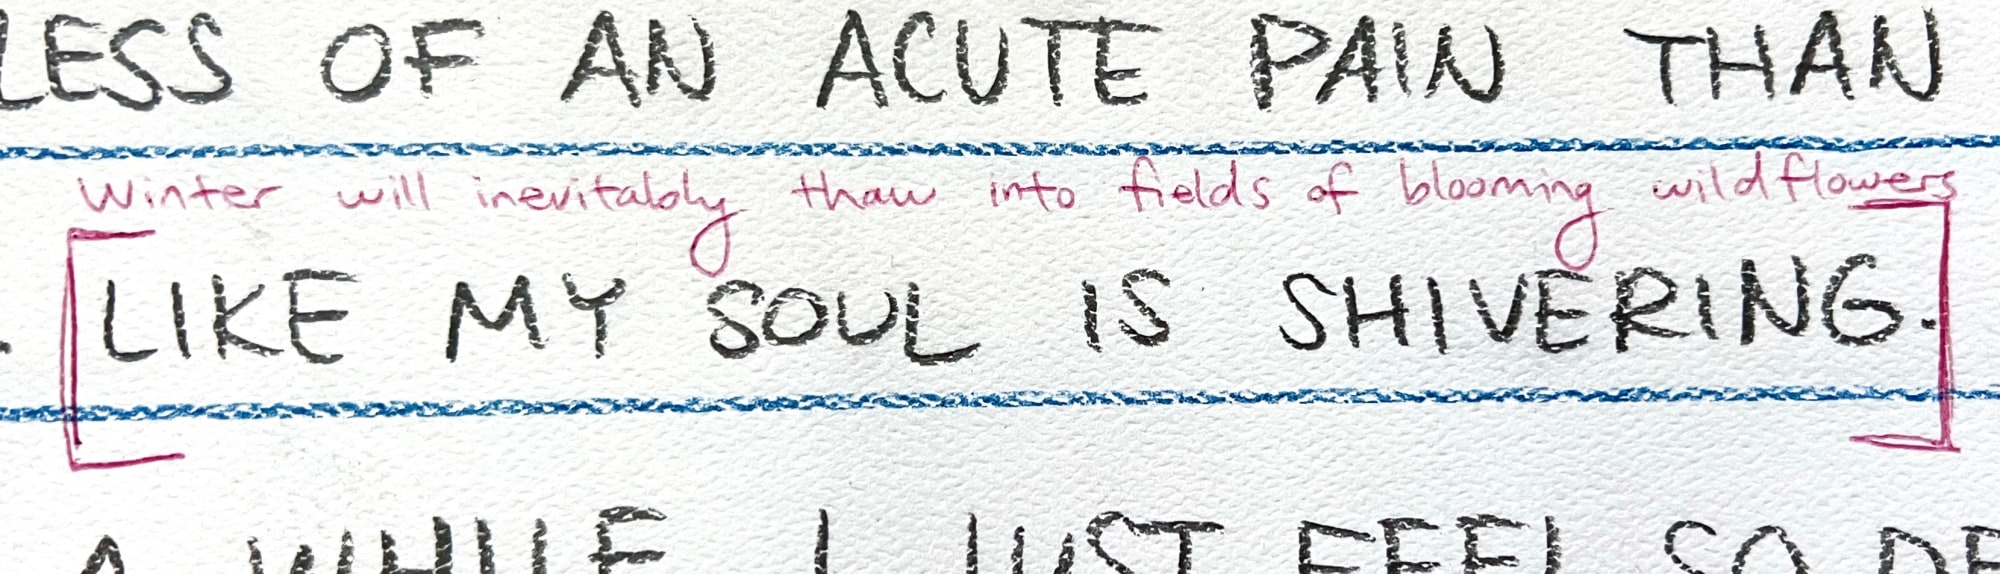 LESS OF AN ACUTE PAIN THAN
Winter will inevitably thaw into fields of blooming wildflowers
[LIKE MY SOUL IS SHIVERING.]
A WHILE I JUST FEEL SO